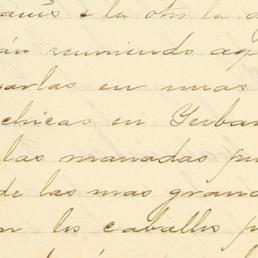 la otra la
án reuniendo
parlas en unas
chicas en Yerba
las manadas
de las mas gran
los caballos